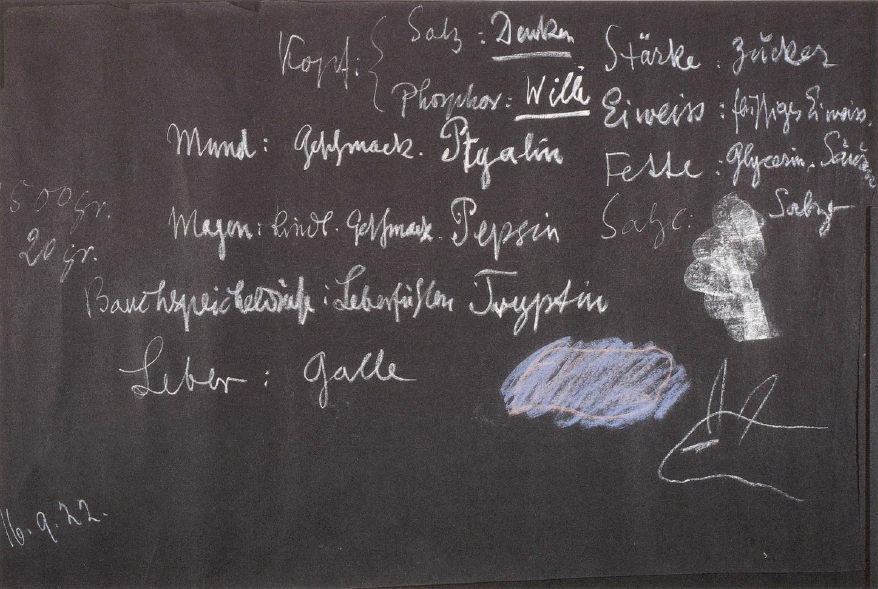 Kopf: Salz: Denken
Phosphor: Wille
Mund: Geschmack. Ptyalin
Magen: kindl. Geschmack. Pepsin
Bauchspeicheldrüse: Leberfühlen Tryptin
Leber: Galle
Stärke: Zucker
Eiweiss: flüssiges Eiweiss.
Fette: Glycerin, Säuren
Salze: Salze
500 gr.
20 gr.
16.9.22.